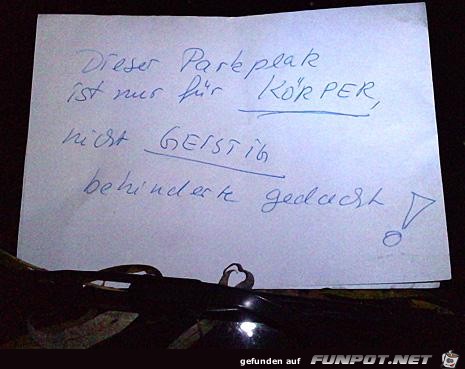 Dieser Parkplatz
ist nur für KÖRPER,
nicht GEISTIG
behinderte gedacht!
gefunden auf FUNPOT.NET